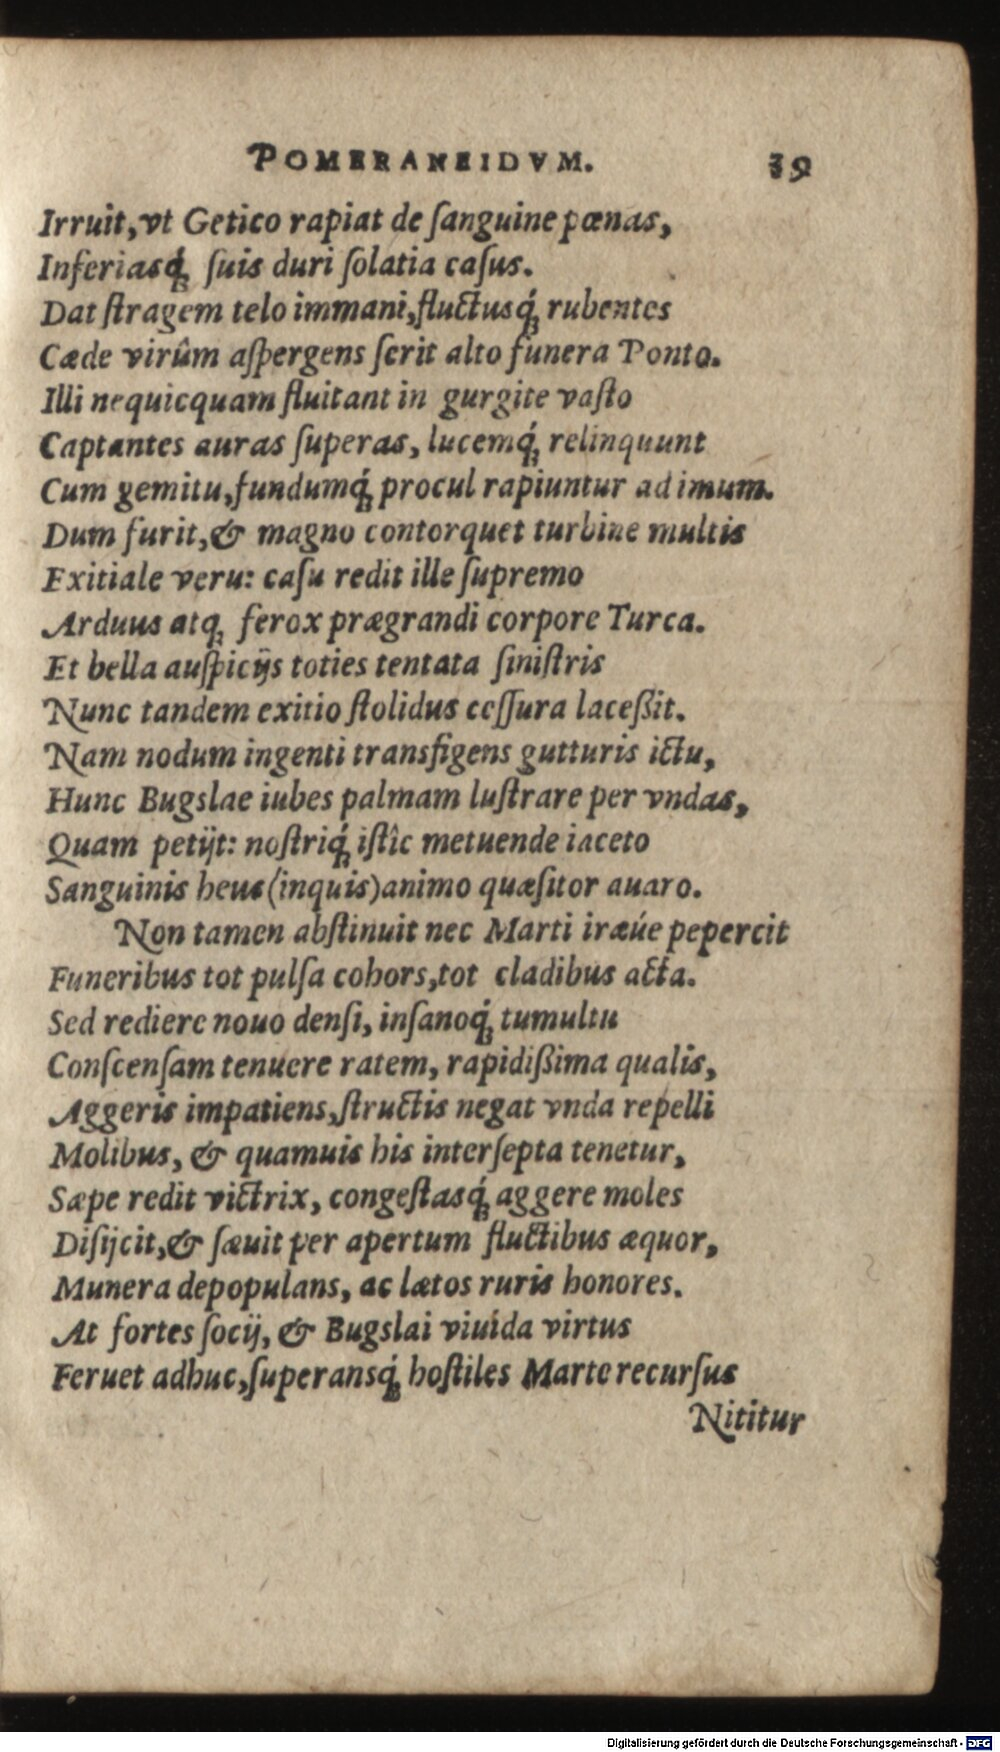 POMERANEIDVM. 39
Irruit, vt Getico rapiat de ſanguine pœnas,
Inferiasq́ꝫ ſuis duri ſolatia caſus.
Dat ſtragem telo immani, fluctusq́ꝫ rubentes
Cæde virûm aſpergens ſerit alto funera Ponto.
Illi nequicquam fluitant in gurgite vaſto
Captantes auras ſuperas, lucemq́ꝫ relinquunt
Cum gemitu, fundumq́ꝫ procul rapiuntur ad imum.
Dum furit, & magno contorquet turbine multis
Exitiale veru: caſu redit ille ſupremo
Arduus atqꝫ ferox prægrandi corpore Turca.
Et bella auſpicijs toties tentata ſiniſtris
Nunc tandem exitio ſtolidus ceſſura laceßit.
Nam nodum ingenti transfigens gutturis ictu,
Hunc Bugslae iubes palmam luſtrare per vndas,
Quam petijt: noſtriq́ꝫ iſtîc metuende iaceto
Sanguinis heus (inquis) animo quæſitor auaro.
Non tamen abſtinuit nec Marti iræúe pepercit
Funeribus tot pulſa cohors, tot cladibus acta.
Sed rediere nouo denſi, inſanoq́ꝫ tumultu
Conſcenſam tenuere ratem, rapidißima qualis,
Aggeris impatiens, ſtructis negat vnda repelli
Molibus, & quamuis his interſepta tenetur,
Sæpe redit victrix, congeſtasq́ꝫ aggere moles
Diſijcit, & ſæuit per apertum fluctibus æquor,
Munera depopulans, ac lætos ruris honores.
At fortes ſocij, & Bugslai viuida virtus
Feruet adhuc, ſuperansq́ꝫ hoſtiles Marte recurſus
Nititur
Digitalisierung gefördert durch die Deutsche Forschungsgemeinschaft - DFG